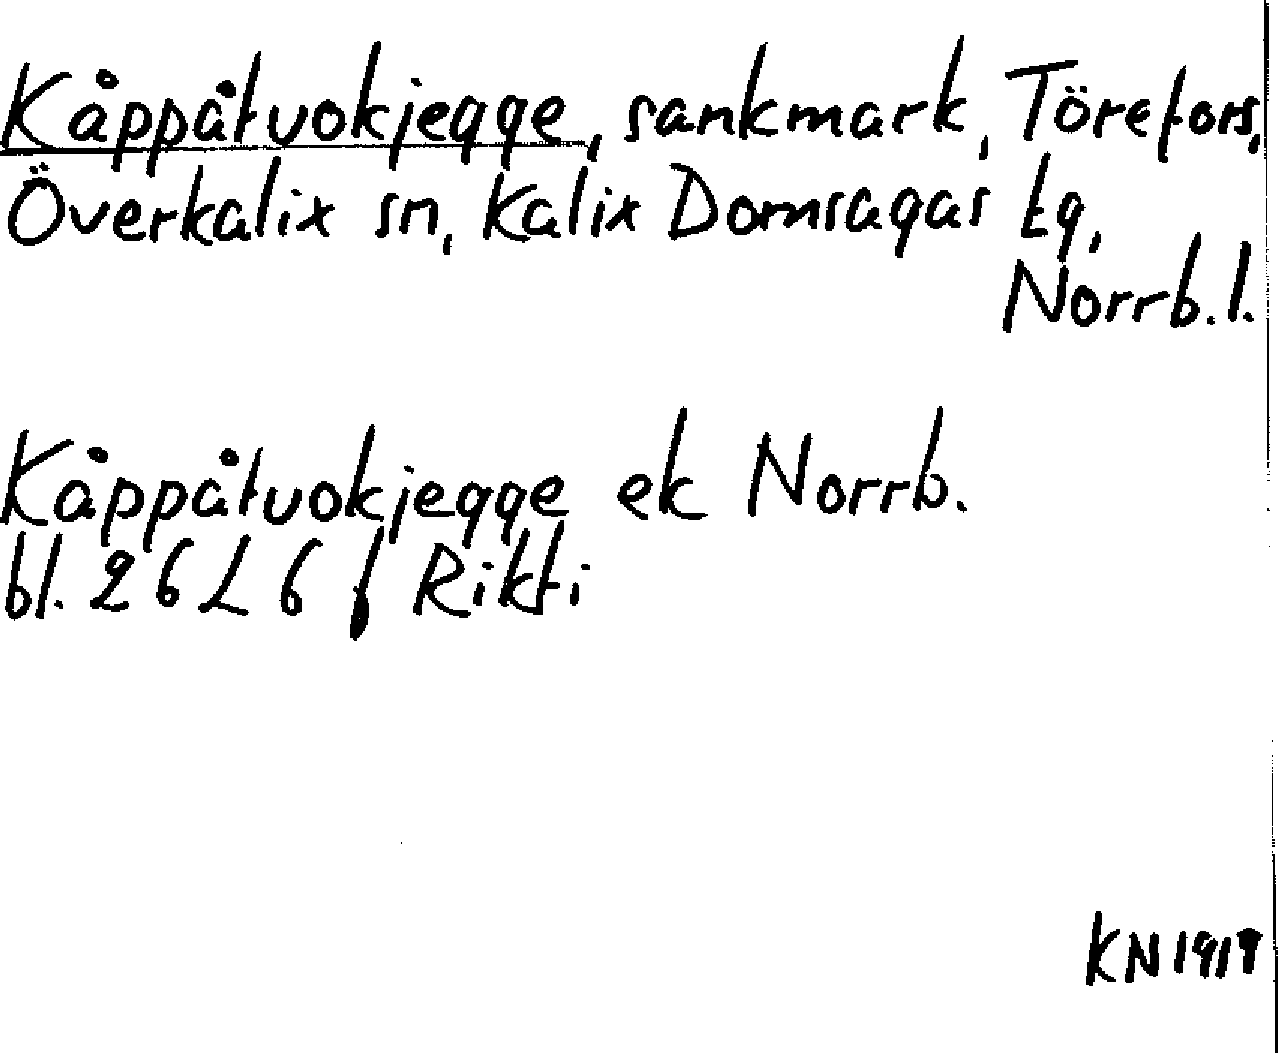 Kåppåtvokjegge, sankmark, Törefors,
Överkalix sn, Kalix Domsagas tg,
Norrb.l.
Kåppåtvokjegge ek Norrb.
bl. 26 L 6 f Rikti
KN